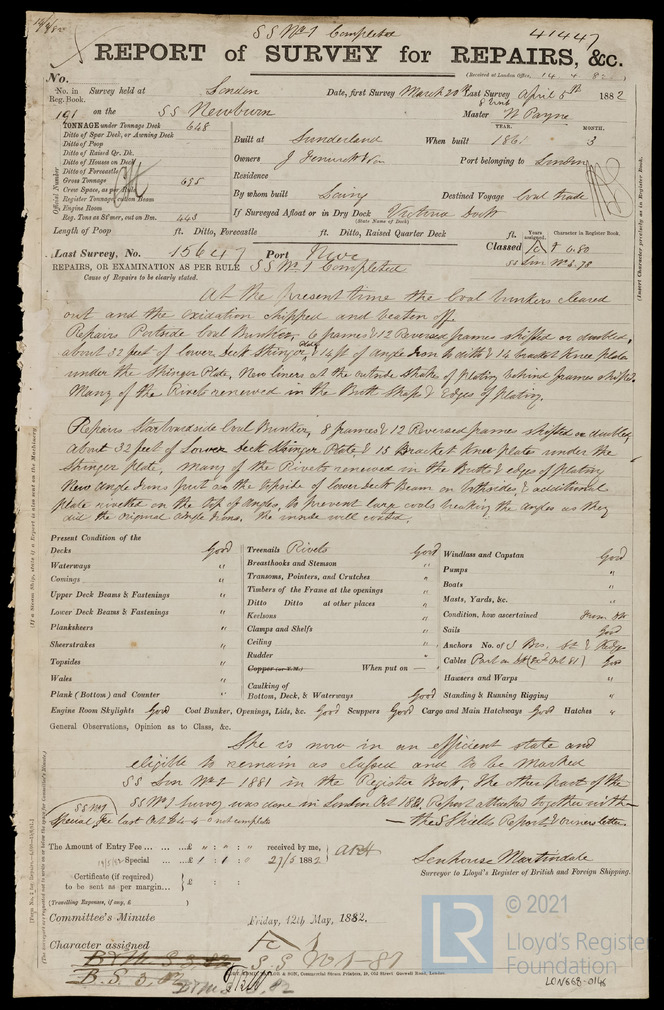 SS No 1 Completed
41447
REPORT of SURVEY for REPAIRS, &c.
(Received at London Office, 14.4.82)
No.
No. in Reg. Book. Survey held at London Date, first Survey March 20th Last Survey April 5th 1882
191 on the SS Newburn Master W Payne
TONNAGE under Tonnage Deck 648
Ditto of Spar Deck, or Awning Deck
Ditto of Poop
Ditto of Raised Qr. Dk.
Ditto of Houses on Deck
Ditto of Forecastle
Gross Tonnage 695
Crew Space, as per Rule
Register Tonnage
Engine Room
Reg. Tons as St'mer, cut on Bm. 443
Official Number
Built at Sunderland When built YEAR. 1861 MONTH. 3
Owners J Fenwick & Son Port belonging to London
Residence
By whom built Laing Destined Voyage Coal trade
If Surveyed Afloat or in Dry Dock Victoria Dock
(State Name of Dock)
Length of Poop ft. Ditto, Forecastle ft. Ditto, Raised Quarter Deck ft.
Years assigned. Character in Register Book.
Classed
6.80
SS Lon No 3. 78
(Insert Character precisely as in Register Book.)
Last Survey, No. 15647 Port Newc
REPAIRS, OR EXAMINATION AS PER RULE SS No 1 Completed
Cause of Repairs to be clearly stated.
At the present time the Coal bunkers cleared
out and the oxidation chipped and beaten off
Repairs Portside Coal Bunker, 6 frames & 12 Reversed frames shifted or doubled,
about 32 feet of lower deck Stringer plate & 14 ft of angle Iron to ditto & 14 bracket Knee plate
under the Stringer Plate, New liners at the outside Strake of plating behind frames shifted.
Many of the Rivets renewed in the Butt Straps & Edges of plating.
Repairs Starboardside Coal Bunker, 8 frames & 12 Reversed frames shifted or doubled
about 32 feet of Lower deck Stringer Plate & 15 Bracket Knee plate under the
Stringer plate, Many of the Rivets renewed in the Butts & edges of plating
New angle Irons put on the topside of lower deck Beam on both sides & additional
plate rivetted on the top of angles, to prevent large coals breaking the angles as they
did the original angle Irons. The inside well coated.
Present Condition of the
Decks Good Treenails Rivets Good Windlass and Capstan Good
Waterways " Breasthooks and Stemson " Pumps "
Comings " Transoms, Pointers, and Crutches " Boats "
Upper Deck Beams & Fastenings " Timbers of the Frame at the openings " Masts, Yards, &c. "
Lower Deck Beams & Fastenings " Ditto Ditto at other places " Condition, how ascertained From Dk
Planksheers " Keelsons " Sails Good
Sheerstrakes " Clamps and Shelfs " Anchors No. of 3 Brs. St & Kedge
Topsides " Ceiling " Cables
Wales " Rudder " Hawsers and Warps "
Copper (or Y.M.) When put on —
Plank (Bottom) and Counter " Caulking of Bottom, Deck, & Waterways Good Standing & Running Rigging "
Engine Room Skylights Good Coal Bunker, Openings, Lids, &c. Good Scuppers Good Cargo and Main Hatchways Good Hatches "
General Observations, Opinion as to Class, &c.
She is now in an efficient state and
eligible to remain as classed and to be marked
SS Lon No 1 1881 in the Register Book. The other part of the
SS No 1 Survey was done in London Oct 1881, Report attached together with
the Shields Report & owners letter.
SS No 1
Special Fee last Oct not complete
The Amount of Entry Fee £ " : " : " received by me,
Special £ 1 : 1 : 0 27/5 1882
Certificate (if required) to be sent as per margin £
(Travelling Expenses, if any, £ )
Senhouse Martindale
Surveyor to Lloyd's Register of British and Foreign Shipping.
Committee's Minute Friday, 12th May, 1882.
Character assigned
S.S No 1-81
B.S 3, 82
© 2021
LR
Lloyd's Register
Foundation
LON668-0146